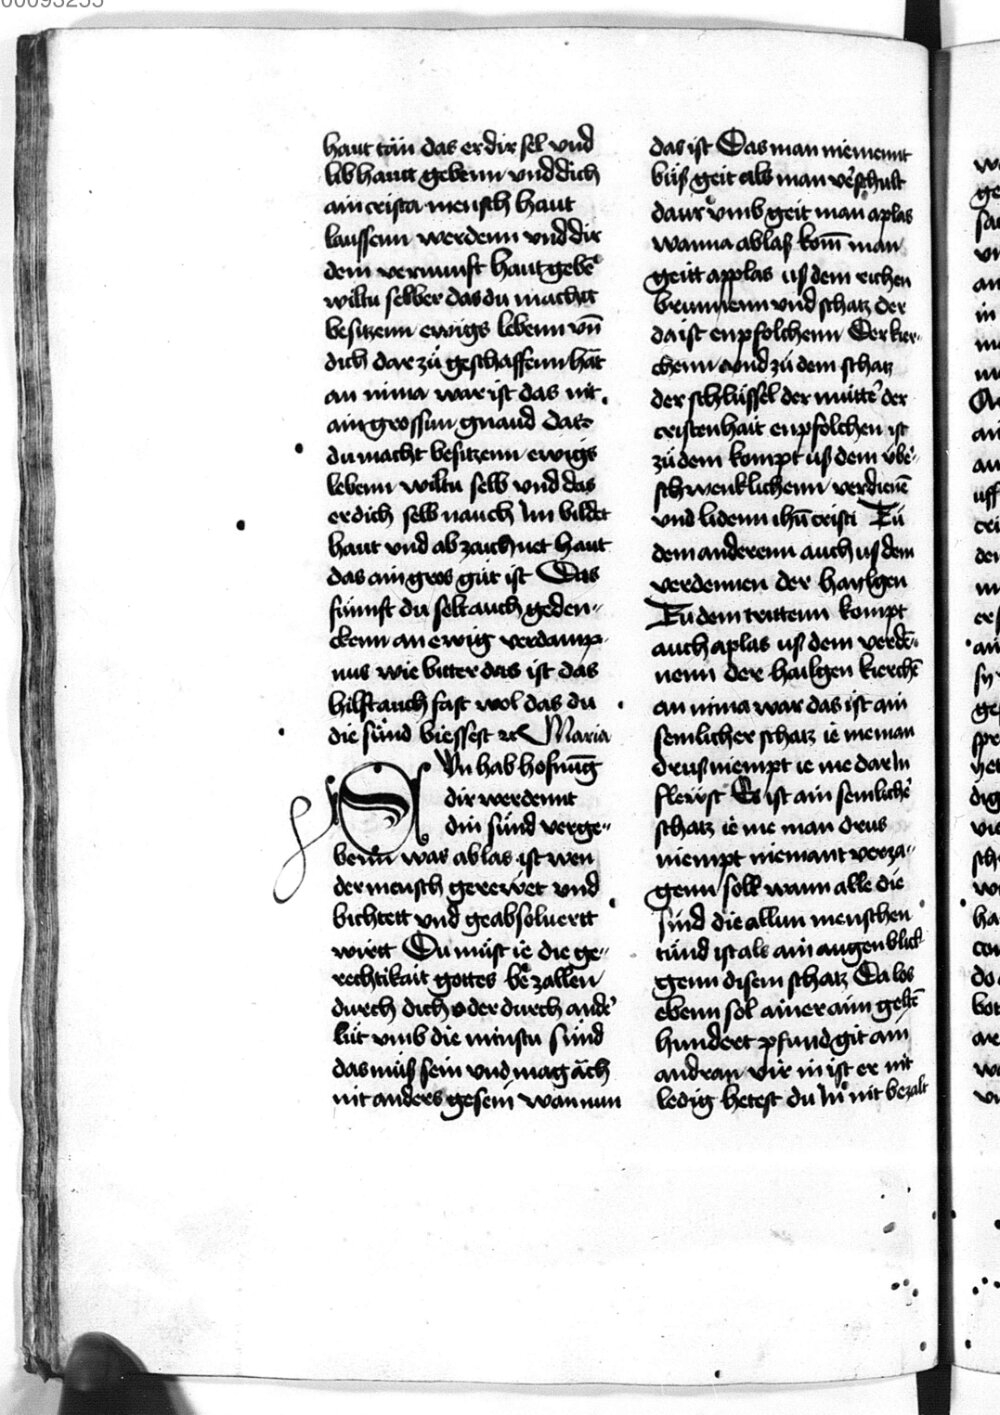 00093255
haut tǎn das er dir sel vnd
lib hautt gebenn vnd dich
ain crista mensch haut
laussenn werdenn vnd dir
dem vernunft haut gebē
wiltu selber das du machtt
besitzenn ewigs lebenn vn̄
dich dar zů geschaffenn hāt
an nima war ist das nit
ain grossun gnaud das
du macht besitzenn ewigs
lebenn wiltu selb vnd das
er dich selb nauch im bildet
haut vnd ab zaichnet haut
das ain gros gůt ist Das
fúnnft du solt auch geden-
ckenn an ewig verdamp-
nus wie bitter das ist das
hilft auch fast wol das du
die sůnd biessest etc Maria
DVn hab hofnu̅g
dir werdennt
din sůnd verge-
benn was ablas ist wen
der mensch gerewet vnd
bichtett vnd geabsoluertt
wirtt Du můst ie die ge-
rechtikait gottes bezallen
durch dich oder durch ander
lút vmb die minstu sund
das můß sein vnd mag ǎch
nit anders gesein wann nun
das ist Das man niemennt
bůß geit als man verschult
daur vmb geit man aplas
wanna ablaß kom̄ man
geitt applas uß dem eichen
brunnenn vnd schatz der
da ist enpfolchenn Der kier-
chenn vnd zů dem schatz
der schlússel der mutter der
cristenhait enpfolchen ist
zů dem kompt uß dem vber-
schwenklichenn verdienē
vnd lidenn ihu̅ cristi Zů
dem anderenn auch uß dem
verdennen der hailgen
Zů dem trittenn kompt
auch aplas uß dem verdē-
nenn der hailgen kierchē
an nima war das ist ain
semlicher schatz ie me man
drus niempt ie me dar in
fleust Es ist ain semlicher
schatz ie me man drus
niempt niemant verza-
genn soll wann alle die
sind die allun menschen
tůnd ist als ain augen blick
genn disem schatz Da los
ebenn sol ainer aim geltē
hundert pfund git ain
andran vir in ist er nit
ledig hetest du in nit bezalt